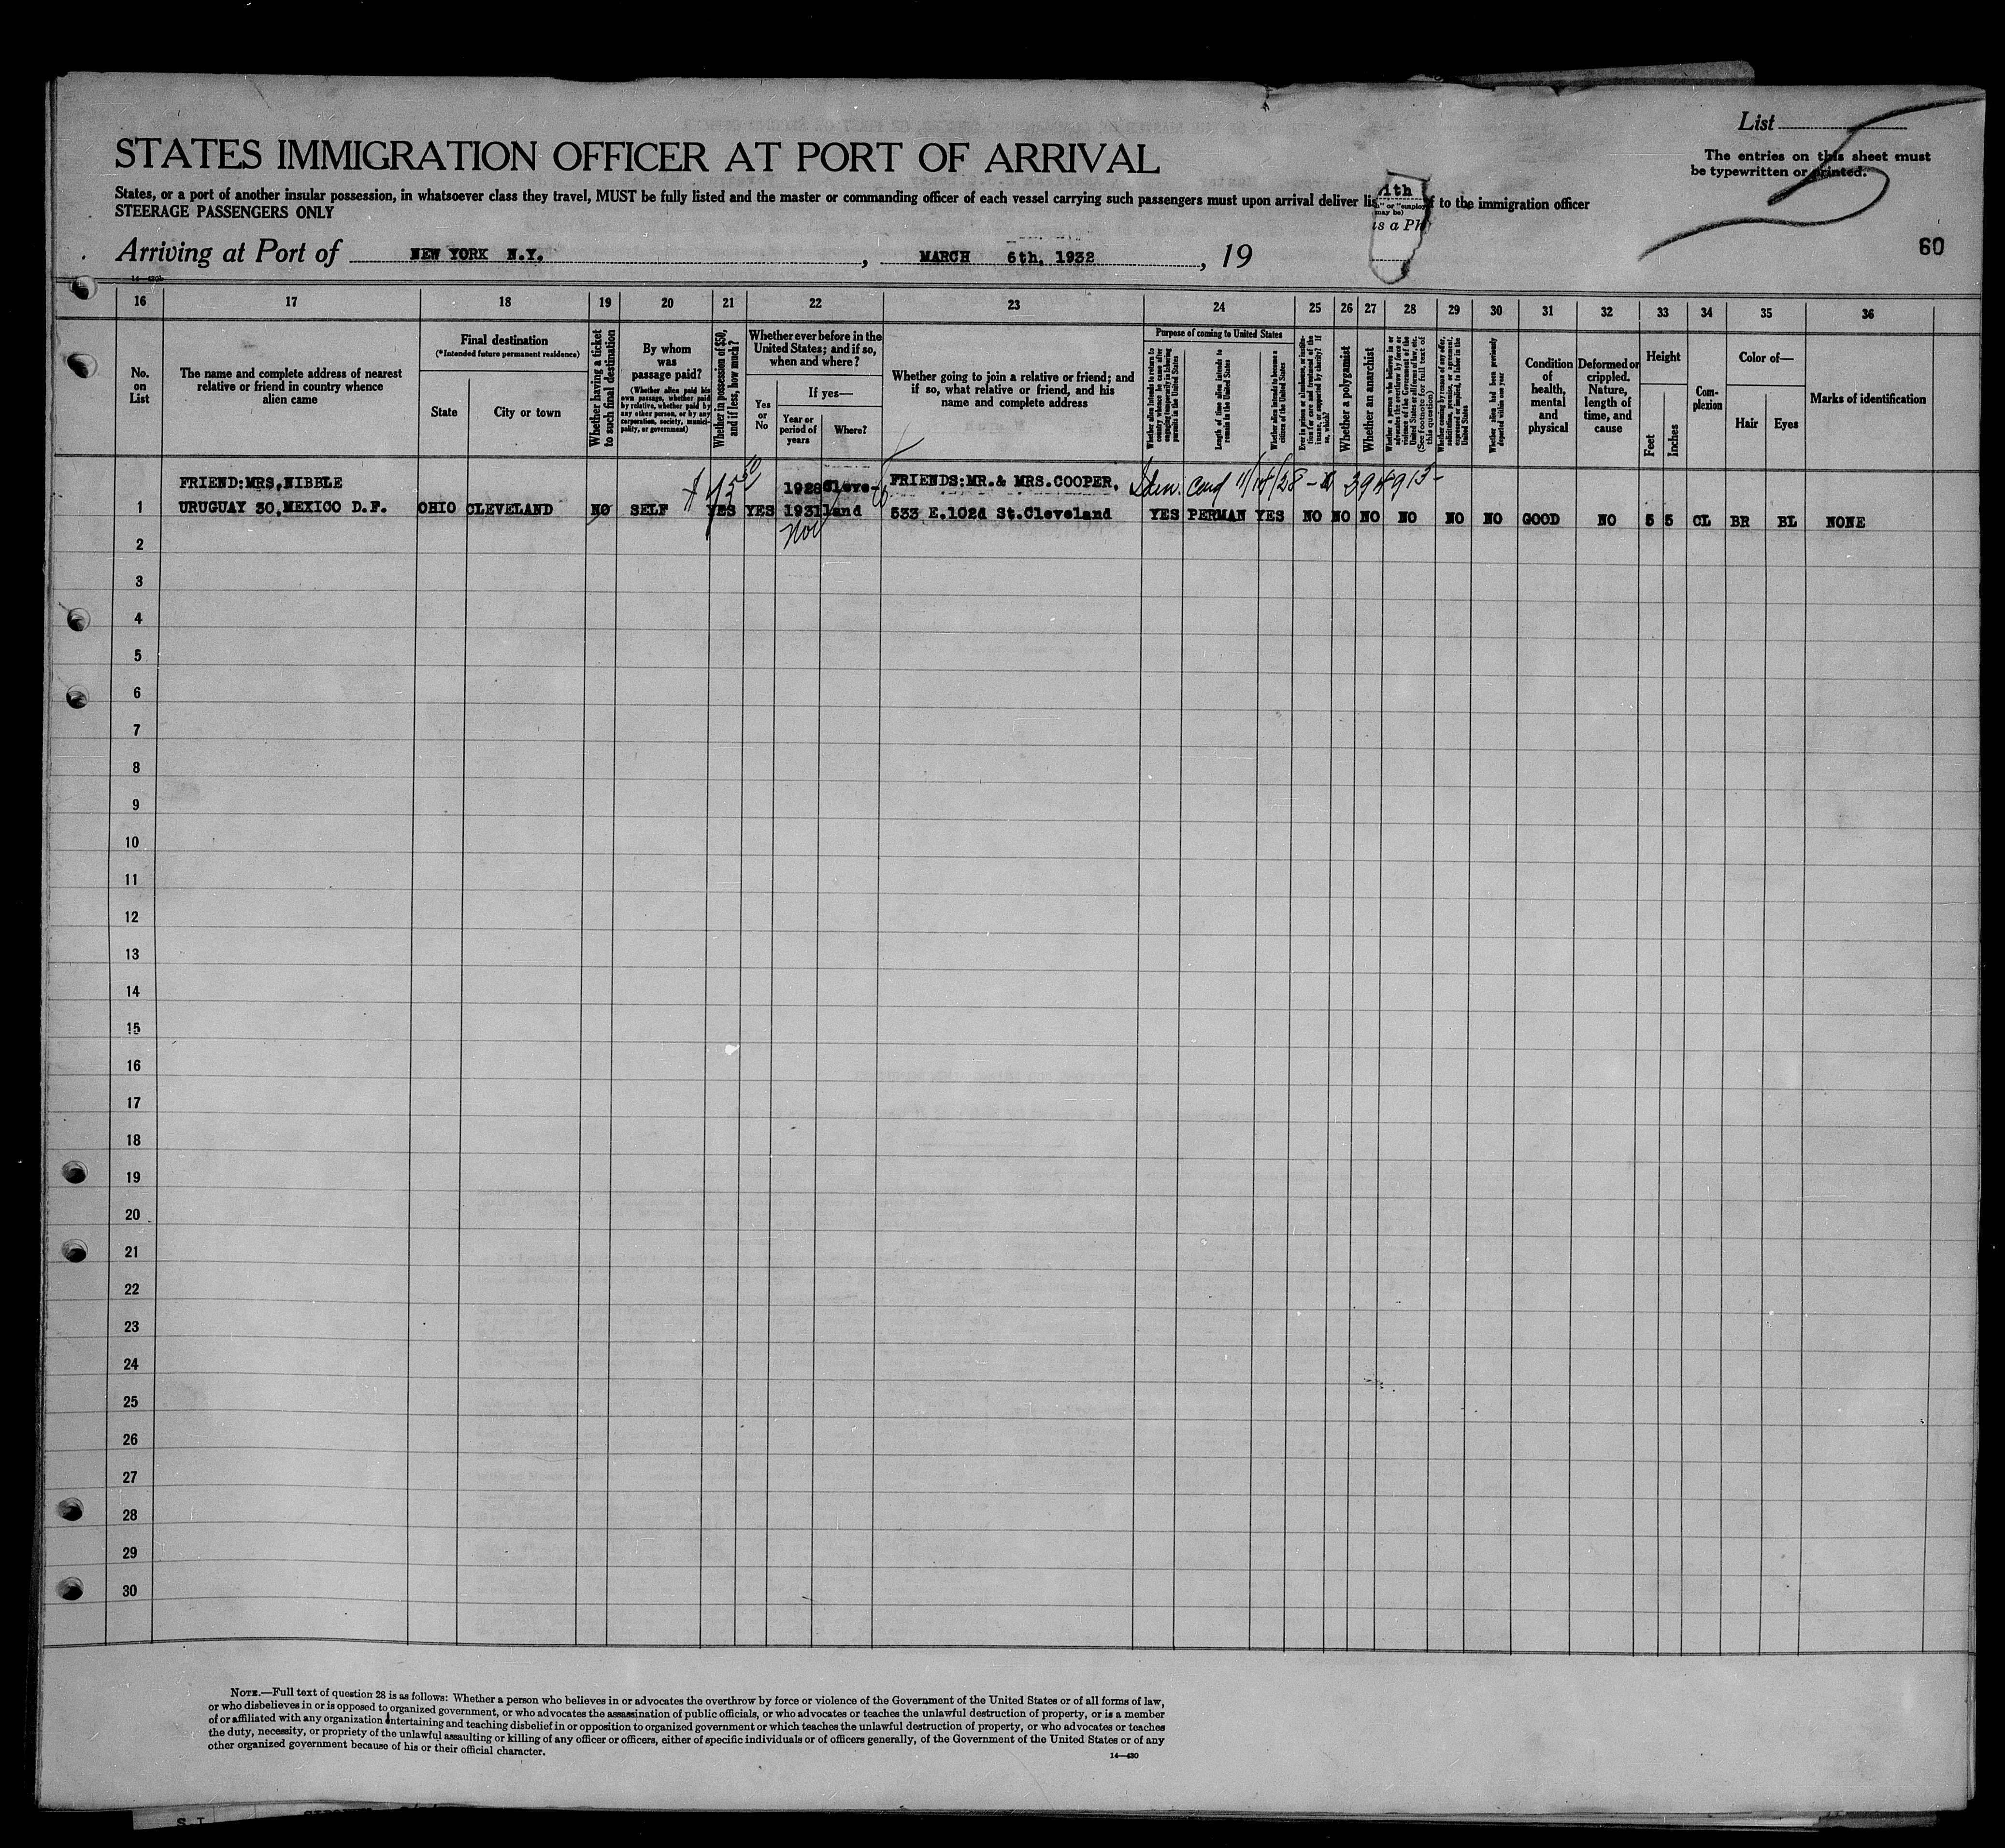 List
The entries on this sheet must
be typewritten or printed.
STATES IMMIGRATION OFFICER AT PORT OF ARRIVAL
States, or a port of another insular possession, in whatsoever class they travel, MUST be fully listed and the master or commanding officer of each vessel carrying such passengers must upon arrival deliver lis f to the immigration officer
STEERAGE PASSENGERS ONLY
ith
" or "employ
may be)
is a Ph
Arriving at Port of NEW YORK N.Y. , MARCH 6th. 1932 , 19
5
60
14—430b
16 17 18 19 20 21 22 23 24 25 26 27 28 29 30 31 32 33 34 35 36
No.
on
List
The name and complete address of nearest
relative or friend in country whence
alien came
Final destination
(*Intended future permanent residence)
State
City or town
Whether having a ticket
to such final destination
By whom
was
passage paid?
(Whether alien paid his
own passage, whether paid
by relative, whether paid by
any other person, or by any
corporation, society, munici-
pality, or government)
Whether in possession of $50,
and if less, how much?
Whether ever before in the
United States; and if so,
when and where?
Yes
or
No
If yes—
Year or
period of
years
Where?
Whether going to join a relative or friend; and
if so, what relative or friend, and his
name and complete address
Purpose of coming to United States
Whether alien intends to return to
country whence he came after
engaging temporarily in laboring
pursuits in the United States
Length of time alien intends to
remain in the United States
Whether alien intends to become a
citizen of the United States
Ever in prison or almshouse, or institu-
tion for care and treatment of the
insane, or supported by charity? If
so, which?
Whether a polygamist
Whether an anarchist
Whether a person who believes in or
advocates the overthrow by force or
violence of the Government of the
United States or all forms of law, etc.
(See footnote for full text of
this question)
Whether coming by reason of any offer,
solicitation, promise, or agreement,
expressed or implied, to labor in the
United States
Whether alien had been previously
deported within one year
Condition
of
health,
mental
and
physical
Deformed or
crippled.
Nature,
length of
time, and
cause
Height
Feet
Inches
Com-
plexion
Color of—
Hair
Eyes
Marks of identification
FRIEND:MRS.NIBBLE 1928 Cleve- FRIENDS:MR.& MRS.COOPER.
1 URUGUAY 30.MEXICO D.F. OHIO CLEVELAND NO SELF YES YES 1931 land 533 E.102d St.Cleveland YES PERMAN YES NO NO NO NO NO NO GOOD NO 5 5 CL BR BL NONE
Nov
2
3
4
5
6
7
8
9
10
11
12
13
14
15
16
17
18
19
20
21
22
23
24
25
26
27
28
29
30
NOTE.—Full text of question 28 is as follows: Whether a person who believes in or advocates the overthrow by force or violence of the Government of the United States or of all forms of law,
or who disbelieves in or is opposed to organized government, or who advocates the assassination of public officials, or who advocates or teaches the unlawful destruction of property, or is a member
of or affiliated with any organization entertaining and teaching disbelief in or opposition to organized government or which teaches the unlawful destruction of property, or who advocates or teaches
the duty, necessity, or propriety of the unlawful assaulting or killing of any officer or officers, either of specific individuals or of officers generally, of the Government of the United States or of any
other organized government because of his or their official character.
14—430
S.I